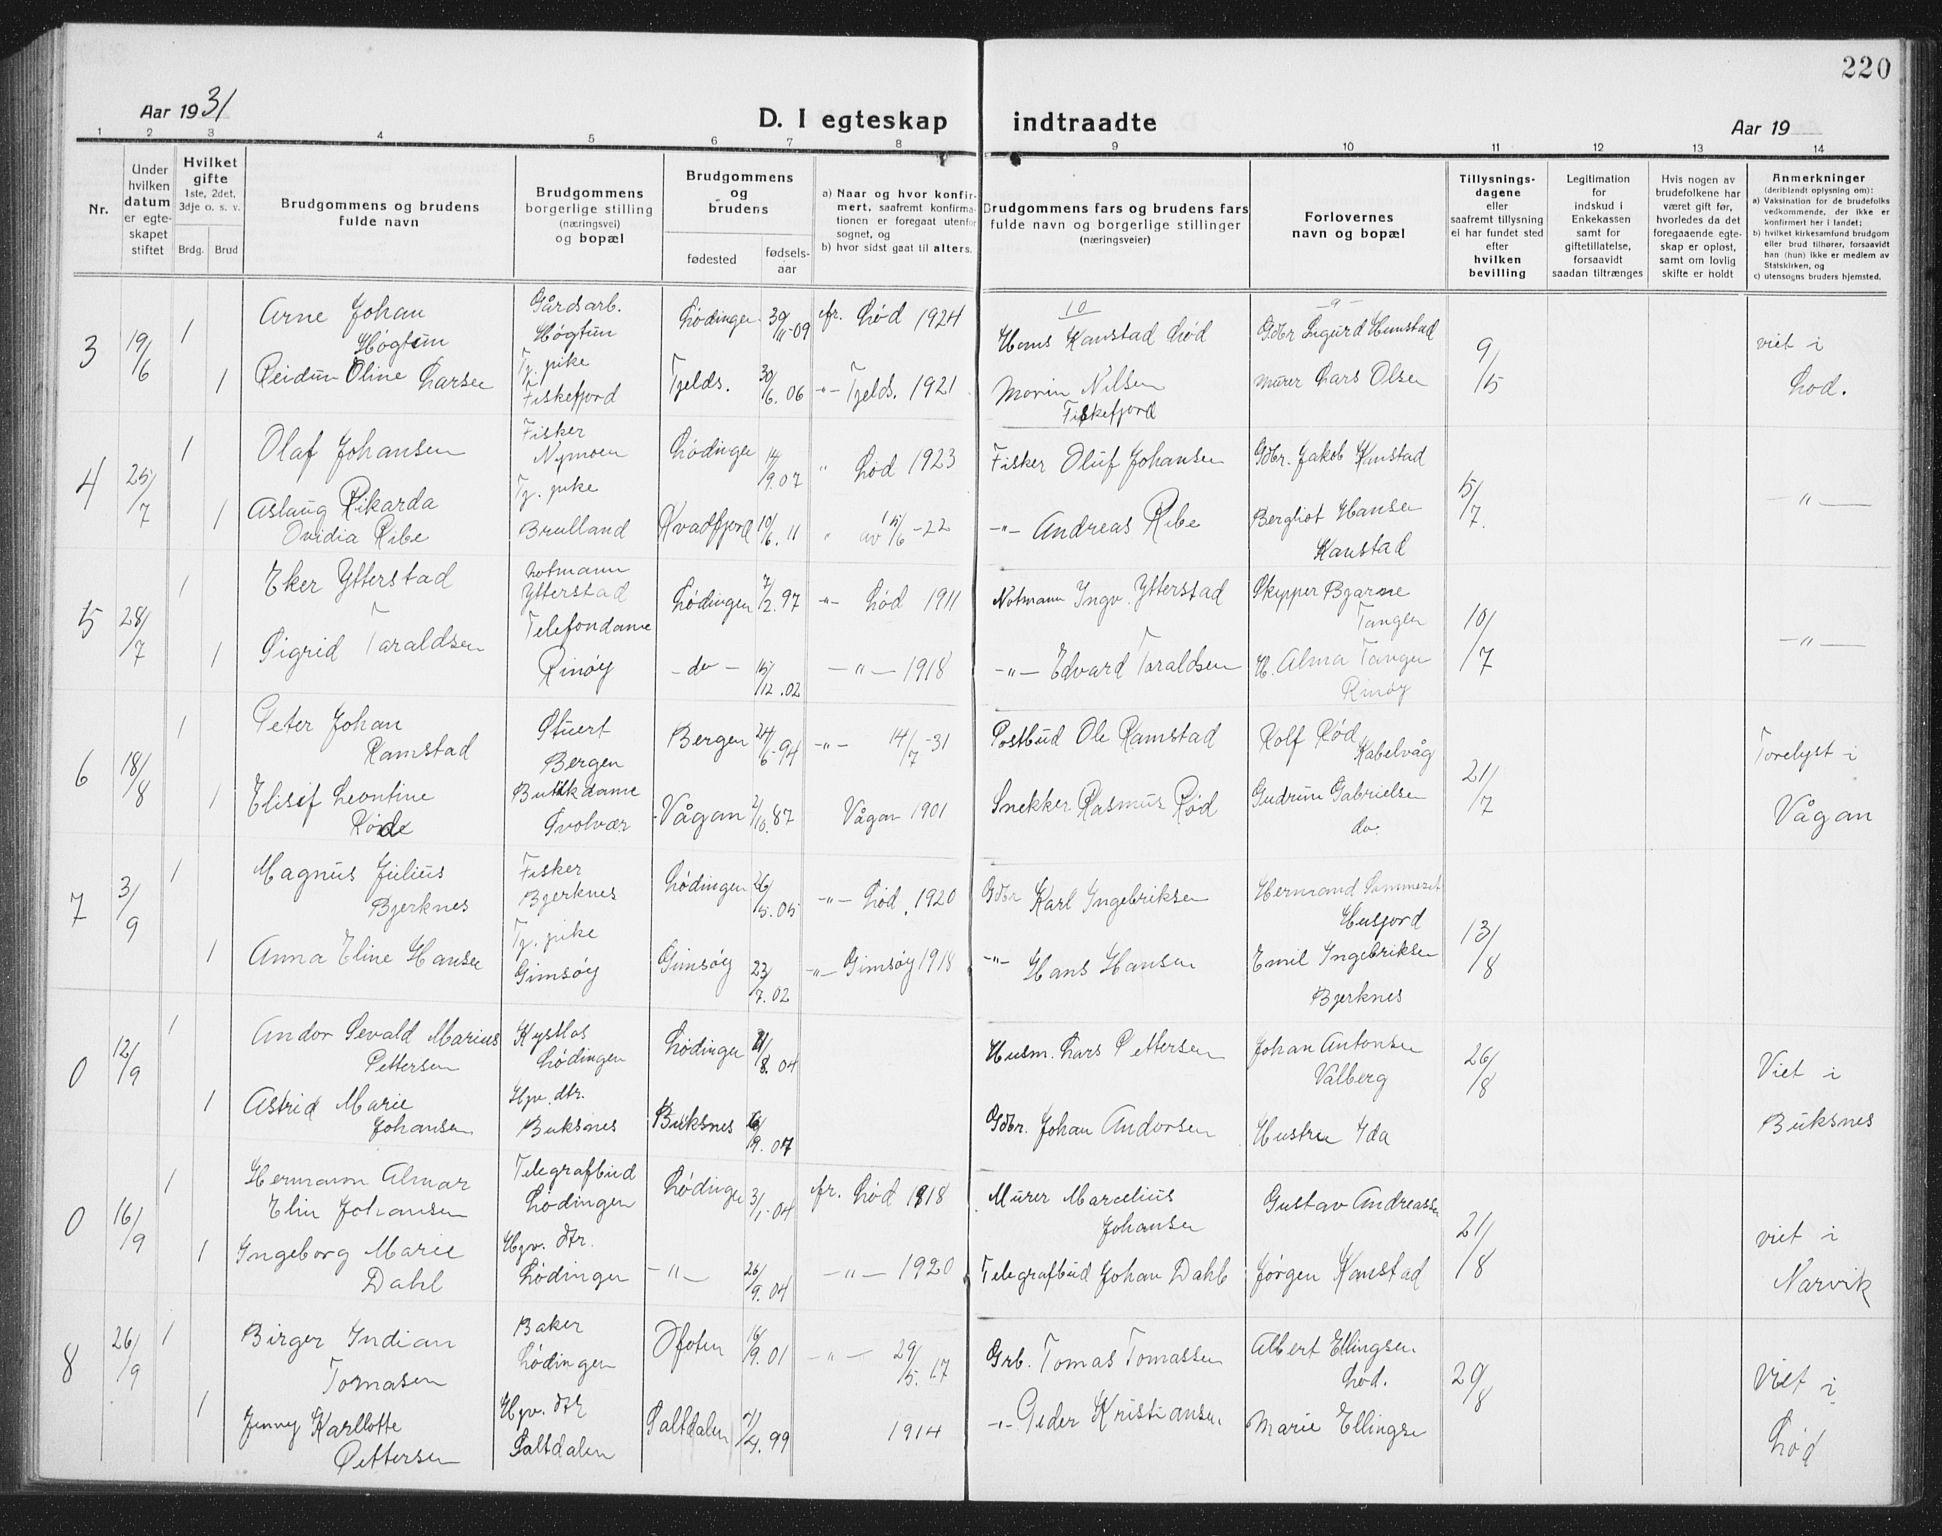 220
Aar 1931
D. I egteskap indtraadte
Aar 19
1 2 3 4 5 6 7 8 9 10 11 12 13 14
Nr.
Under hvilken datum er egte- skapet stiftet
Hvilket gifte 1ste, 2det, 3dje o. s. v.
Brdg. Brud
Brudgommens og brudens fulde navn
Brudgommens borgerlige stilling (næringsvei) og bopæl
Brudgommens og brudens
fødested
fødsels- aar
a) Naar og hvor konfir- mert, saafremt konfirma- tionen er foregaat utenfor sognet, og
b) hvor sidst gaat til alters.
Brudgommens fars og brudens fars fulde navn og borgerlige stillinger (næringsveier)
Forlovernes navn og bopæl
Tillysnings- dagene eller saafremt tillysning ei har fundet sted efter hvilken bevilling
Legitimation for indskud i Enkekassen samt for giftetillatelse, forsaavidt saadan tiltrænges
Hvis nogen av brudefolkene har været gift før, hvorledes da det foregaaende egte- skap er opløst, samt om lovlig skifte er holdt
Anmerkninger (deriblandt oplysning om):
a) Vaksination for de brudefolks vedkommende, der ikke er konfirmert her i landet;
b) hvilket kirkesamfund brudgom eller brud tilhører, forsaavidt han (hun) ikke er medlem av Statskirken, og
c) utensogns bruders hjemsted.
3 19/6 1 Arne Johan Høgtun Gårdsarb. Høgtun Lødingen 30/11-09 fr. Lød 1924 10 Hans Kanstad Lød Gdbr Sigurd Hunstad 9/15 viet i
1 Reidun Oline Larsen Tj. pike Fiskefjord Tjelds. 30/6.06 -"- Tjelds. 1921 Morin Nilsen Fiskefjord murer Lars Olsen Lød.
4 25/7 1 Olaf Johansen Fisker Nymoen Lødingen 14/9.07 " Lød 1923 Fisker Oluf Johansen Gdbr. Jakob Kanstad 5/7. -"-
1 Aslaug Rikarda Ovidia Ribe Tj. pike Brulland Kvadfjord 10/6.11 " av 15/6-22 -"- Andreas Ribe Bergliot Hansen Kanstad
5 28/7 1 Eker Ytterstad Notmann Ytterstad Lødingen 7/2.97 -"- Lød 1911 Notmann Ingv. Ytterstad Skipper Bjarne Tangen 10/7 -"-
1 Sigrid Taraldsen Telefondame Rinøy - do - 15/12.02 -"- 1918 -"- Edvard Taraldsen H. Alma Tangen Rinøy
6 18/8 1 Peter Johan Ramstad Stuert Bergen Bergen 24/6-94 -"- 14/7-31 Postbud Ole Ramstad Rolf Rød Kabelvåg 21/7 Torelyst i
1 Elisif Leontine Røde Butikdame Svolvær Vågan 2/10.87 Vågan 1901 Snekker Rasmus Rød Gudrun Gabrielsen do. Vågan
7 3/9 1 Magnus Julius Bjerknes Fisker Bjerknes Lødingen 26/5.05 -"- Lød. 1920 Gdbr Karl Ingebriksen Hermand Sommerset Husfjord 13/8
1 Anna Eline Hansen Tj. pike Gimsøy Gimsøy 23/7.02 -"- Gimsøy 1918 -"- Hans Hansen Emil Ingebriksen Bjerknes
0 12/9 1 Andor Sevald Marius Pettersen Kystlos Lødingen Lødingen /8.04 Husm. Lars Pettersen Johan Antonsen Valberg 26/8 Viet i
1 Astrid Marie Johansen Hjv. dtr. Buksnes Buksnes /9.07 Gdbr. Johan Andorsen Hustru Ida Buksnes
0 16/9 1 Hermann Almar Elin Johansen Telegrafbud Lødingen Lødingen 3/1-04 fr. Lød 1918 Murer Marcelius Johansen Gustav Andreassen 21/8 viet i
1 Ingeborg Marie Dahl Hjv. dtr. Lødingen -"- 26/9.04 -"- 1920 Telegrafbud Johan Dahl Jørgen Kanstad Narvik
8 26/9 1 Birger Indian Tomasen Baker Lødingen Ofoten 16/9.01 -"- 29/5.17 Grb. Tomas Tomassen Albert Ellingsen Lød. 29/8 Viet i
1 Jenny Karllotte Pettersen Hjv. dtr Saltdalen Saltdalen /4.99 1914 -"- Peder Kristiansen Marie Ellingsen Lød